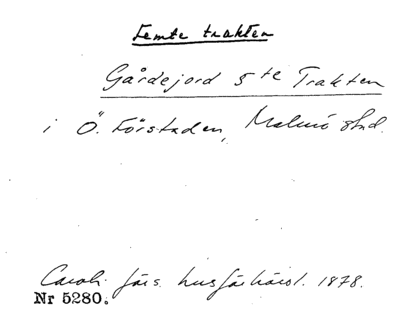 Femte trakten
Gårdejord 5te Trakten
i Ö. Förstaden, Malmö stad.
Caroli förs. husförhörsl. 1878.
Nr 5280.